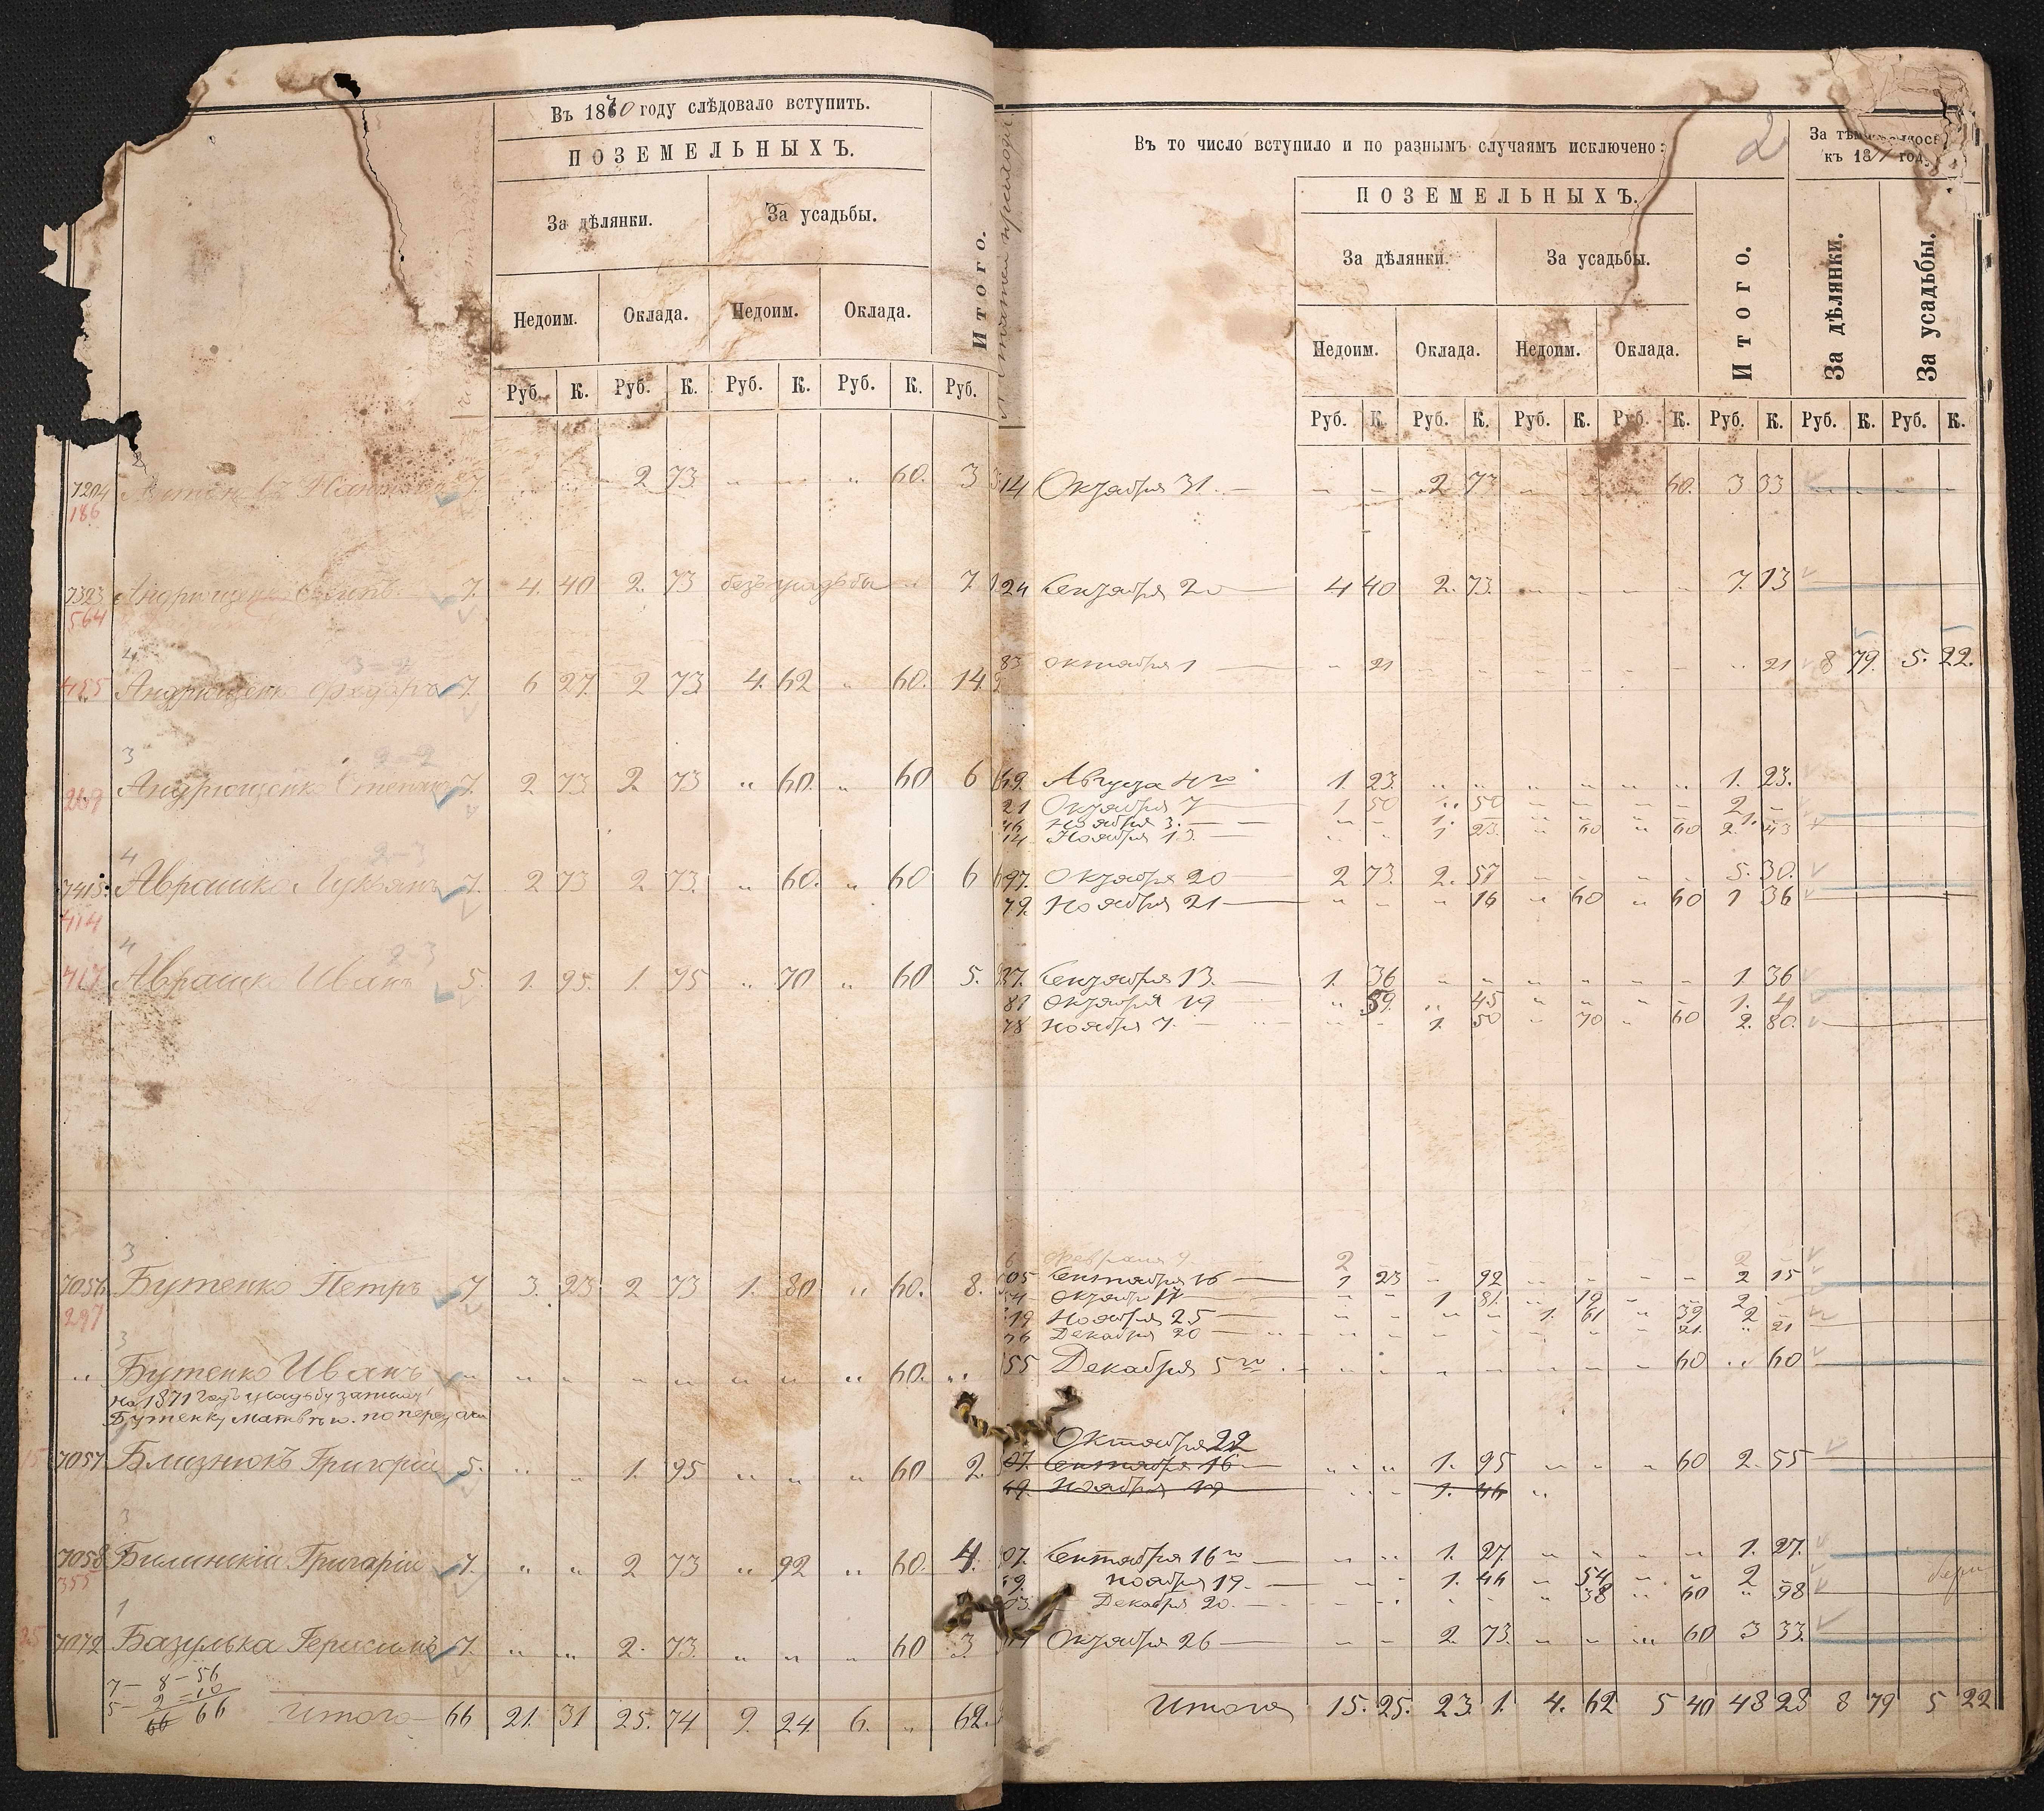 Въ 1870 году слѣдовало вступить.
ПОЗЕМЕЛЬНЫХЪ.
За дѣлянки. За усадьбы.
Итого.
Недоим. Оклада. Недоим. Оклада.
Руб. К. Руб. К. Руб. К. Руб. К. Руб.
7204 7. 2 73. 60. 3
186
7323 Андрющенко Осипъ. 7. 4. 40 2. 73 безъ усадьбы 7.
564
4 3-4
455 Андрющенко Федоръ 7. 6 27. 2 73 4. 62 „ 60. 14.
3 2-2
269 Андрющенко Степанъ 7. 2 73 2. 73 „ 60. „ 60 6
4 2-3
7413. Аврашко Лукьянъ 7. 2 73 2. 73. „ 60. „ 60 6
414
4 2-3
717 Аврашко Иванъ 5. 1. 95. 1. 95 „ 70 „ 60 5.
3
7056 Бутенко Петръ 7 3. 23 2 73 1. 80. „ 60. 8.
297
3
„ Бутенко Иванъ „ „ „ „ „ „ „ „ 60. „
на 1871 годъ усадьбу записать
Бутенку Матвѣю. по передачи
15 7057 Близнюкъ Григорій 5. „ „ 1. 95 „ „ „ 60 2.
3
7058 Билинскій Григарій 7. „ „ 2 73 „ 92 „ 60. 4.
355
1
25 7072 Базулька Герисимъ 7. „ „ 2. 73. „ „ „ 60 3.
7 — 8 — 56
5 — 2 = 10
66 66
Итого 66 21. 31 25. 74 9. 24 6. „ 62.
2
Въ то число вступило и по разнымъ случаямъ исключено:
За тѣмъ
къ 1871 году
ПОЗЕМЕЛЬНЫХЪ.
За дѣлянки. За усадьбы.
Итого. За дѣлянки. За усадьбы.
Недоим. Оклада. Недоим. Оклада.
Руб. К. Руб. К. Руб. К. Руб. К. Руб. К. Руб. К. Руб. К.
14 Октября 31. — 2. 73 60. 3 33
24 Сентября 20 — 4 40 2. 73. 7. 13
83 октября 1 — „ 21 „ 21 8 79. 5. 22.
69. Августа 4го 1. 23. 1. 23.
21 Октября 7 — 1 50 „ 50 2 „
46 Ноября 3. — 1. 1.
14 Ноября 13 1 23. „ 60 „ 60 2. 43
97. Октября 20 — 2 73. 2. 57 5. 30.
79. Ноября 21 — „ „ „ 16 „ 60 „ 60 1 36
37. Сентября 13. — 1. 36 1 36
81 Октября 19 „ 59. „ 45 1. 4
78 Ноября 7. — 1. 50 „ 70 „ 60 2. 80.
6 Февраля 9 — 2 2
105 Сентября 16 — 1 23 „ 92 2 15
Октября 17 1 81. „ 19 2 „
19 Ноября 25 — 1. 61 „ 39 2 „
76 Декабря 20 — 21. „ 21
55 Декабря 5го 60 „ 60
Октября 22
07. Сентября 16 — 1. 95 60 2. 55
69. Ноября 19 1. 46
07. Сентября 16го — 1. 27. 1. 27.
69. ноября 19. — 1. 46 „ 54 2 „
03. Декабря 20. — „ 38 „ 60 „ 98
Октября 26 — 2. 73. 60 3 33.
Итого 15. 25. 23. 1. 4. 62 5 40 48 28 8 79 5 22